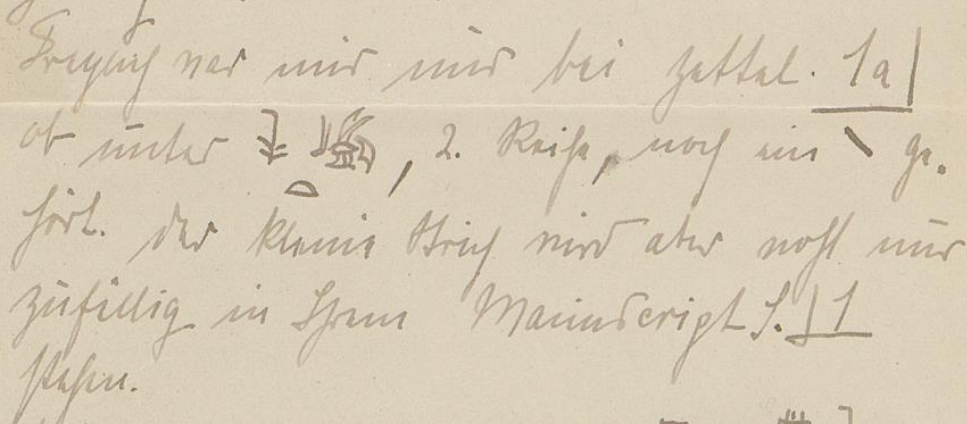 Fraglich war mir nur bei Zettel 1a
ob unter , 2. Reihe, noch ein \ ge-
hört. Der kleine Strich wird aber wohl nur
zufällig in Ihrem Manuscript S. 1
stehen.